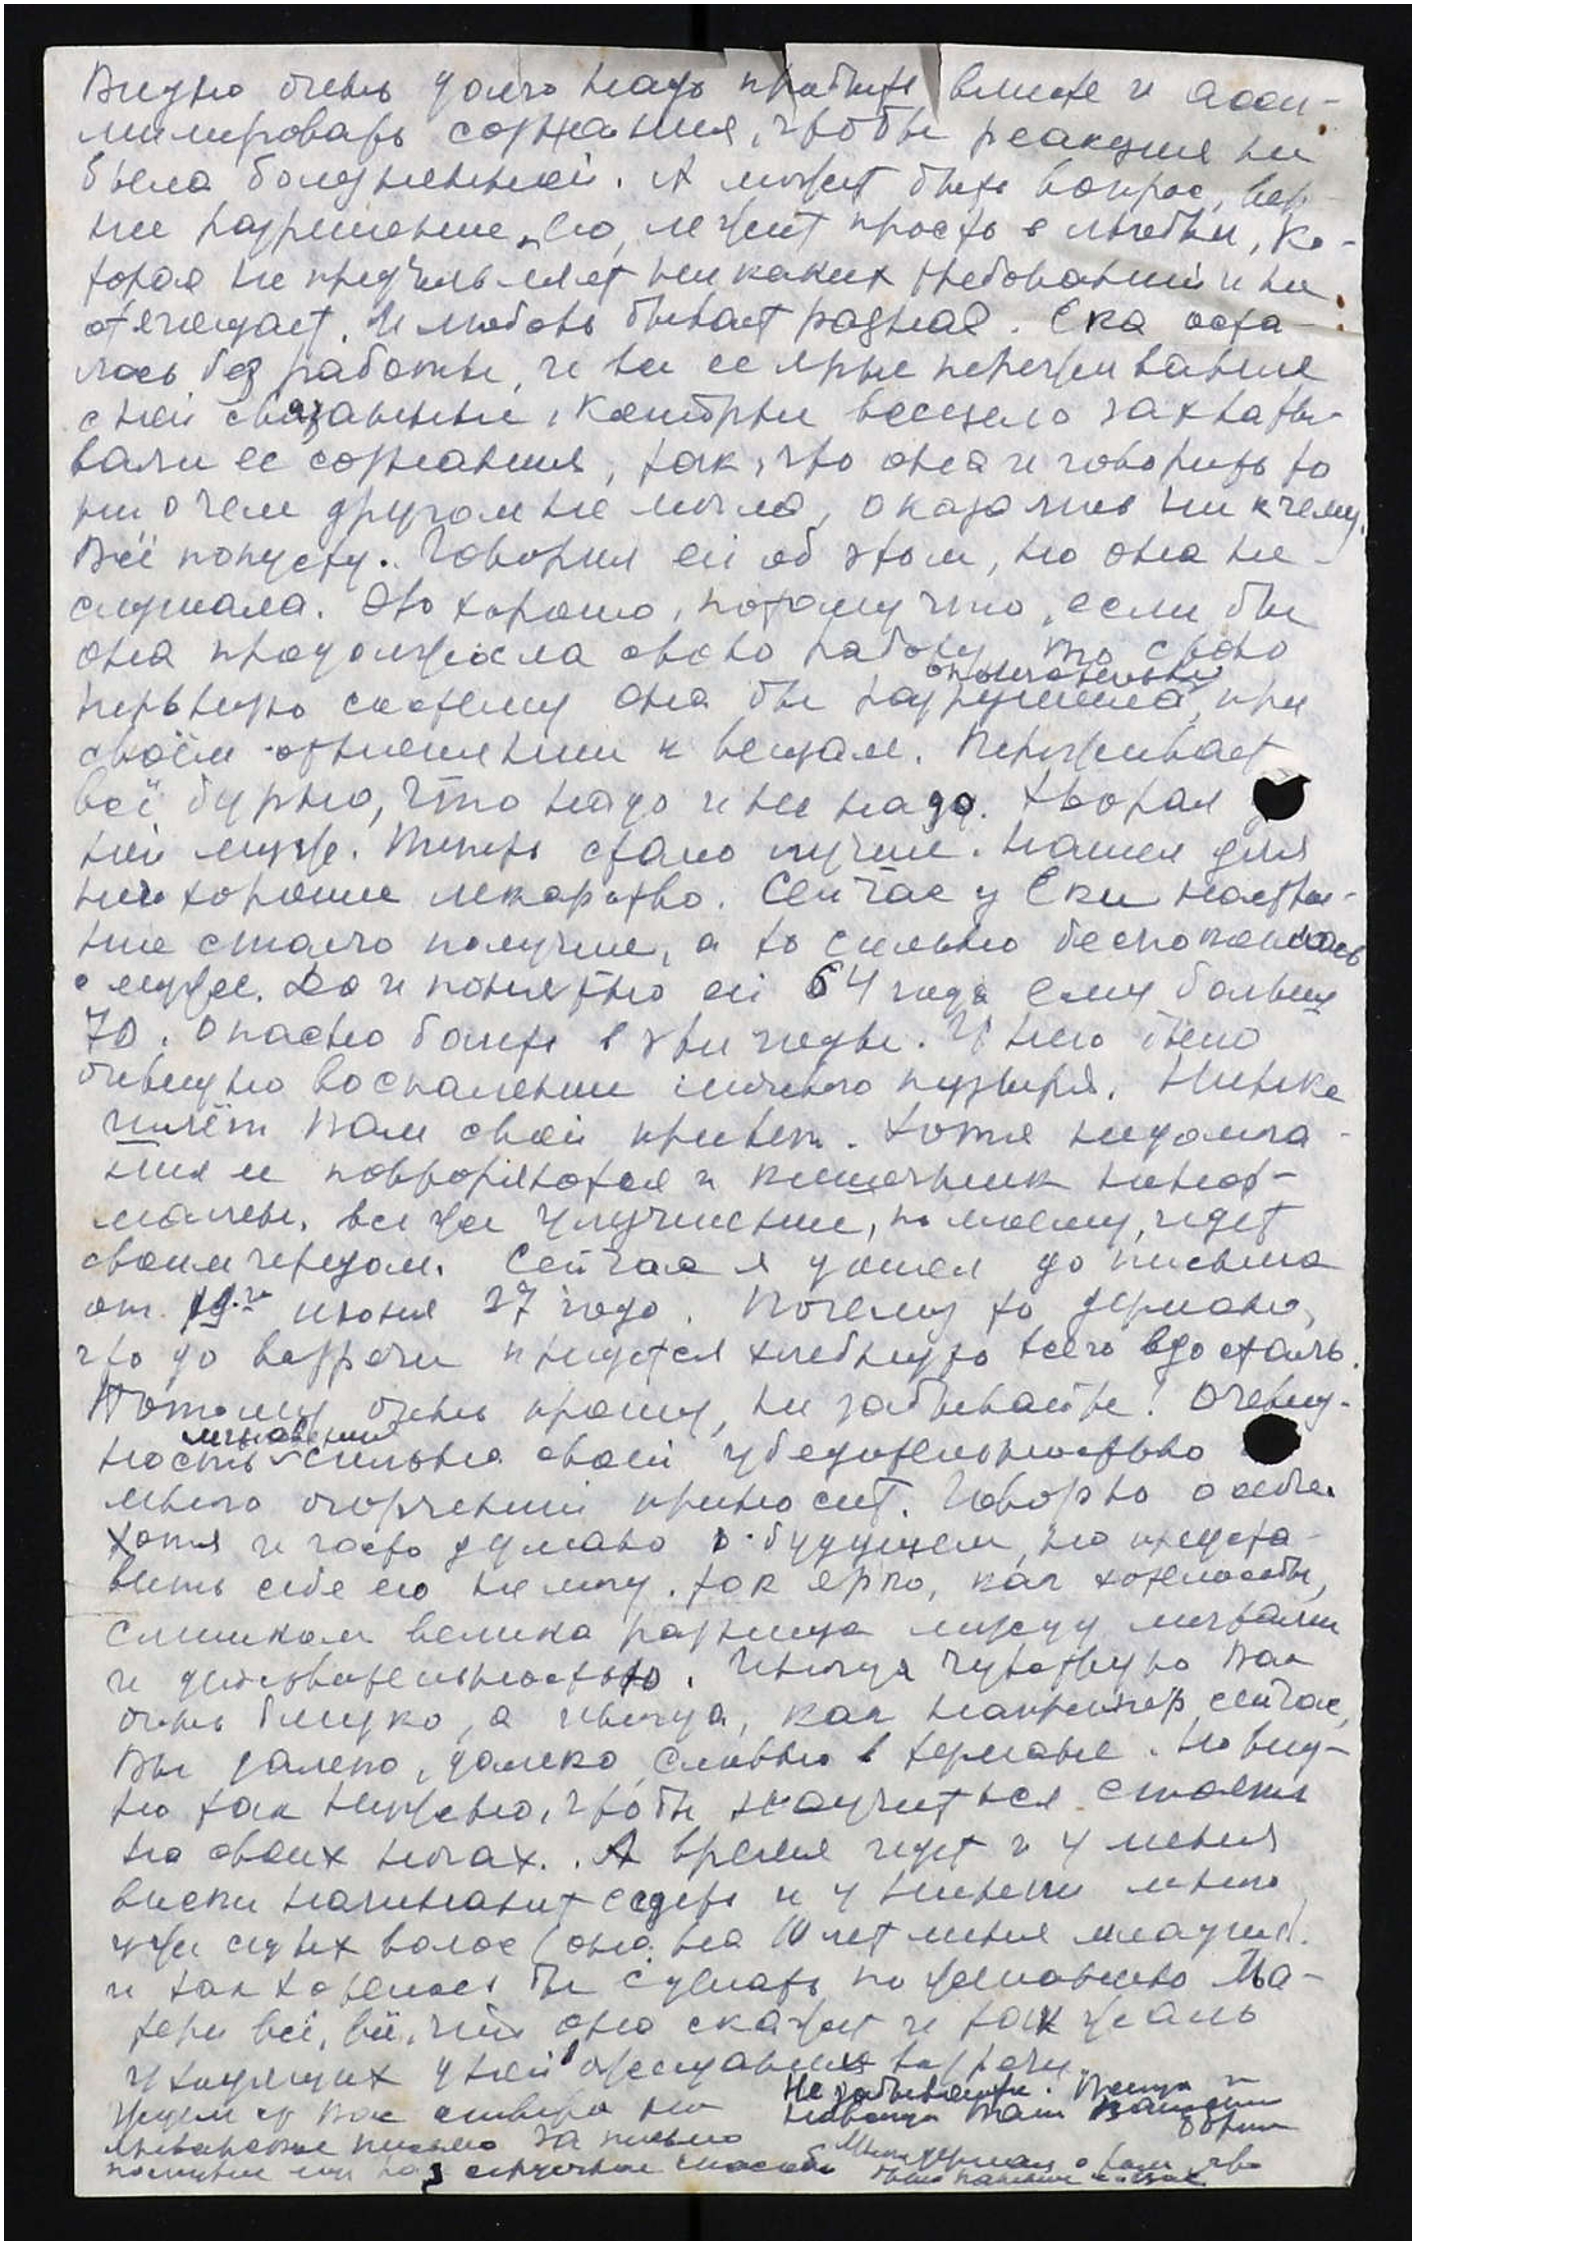 Видно очень долго надо пробыть вместе и асси-
милировать сознания, чтобы реакция не
была болезненной. А может быть вопрос, вер-
нее разрешение его, лежит просто в любви, ко-
торая не предъявляет никаких требований и не
отягощает. И любовь бывает разная. Ека оста-
лась без работы, и все ее ярые переживания
с ней связанные, которые всецело захваты-
вали ее сознание, так, что она и говорить то
ни о чем другом не могла, оказались ни к чему.
Всё попусту. Говорил ей об этом, но она не
слушала. Это хорошо, потому что, если бы
она продолжала свою работу, то свою
нервную систему она бы окончательно разрушила, при
своём отношении к вещам. Переживает
всё бурно, что надо и не надо. Хворал у
ней муж. Теперь стало лучше. Нашел для
него хорошее лекарство. Сейчас у Еки настрое-
ние стало получше, а то сильно беспокоилась
о муже. Да и понятно ей 64 года ему больше
70. Опасно болеть в эти годы. У него было
очевидно воспаление желчного пузыря. Нинка
шлёт Вам свой привет. Хотя недомога-
ния и повторяются и кишечник ненор-
мален, все же улучшение, по моему, идет
своим чередом. Сейчас я дошел до письма
от 19.го июня 27 года. Почему то думаю,
что до встречи придется хлебнуть всего вдосталь.
Потому очень прошу, не забывайте! Очевид-
ность мгновения сильна своей убедительностью и
много огорчений приносит. Говорю о себе.
Хотя и часто думаю о будущем, но предста-
вить себе его не могу так ярко, как хотелось бы,
слишком велика разница между мечтами
и действительностью. Иногда чувствую Вас
очень близко, а иногда, как например сейчас,
Вы далеко, далеко, словно в тумане. Но вид-
но так нужно, чтобы научиться стоять
на своих ногах. А время идет и у меня
виски начинают седеть и у Нинки много
уже седых волос (она на 10 лет меня младше).
и так хотелось бы сделать по желанию Ма-
тери всё, всё, что она скажет и так жаль
уходящих дней в ожидании встречи.
Ждем от Вас ответа на Не забывайте. Всегда и
январское письмо За письмо навсегда Ваш
получили еще раз сердечное спасибо Борис
Мы думали о том, что